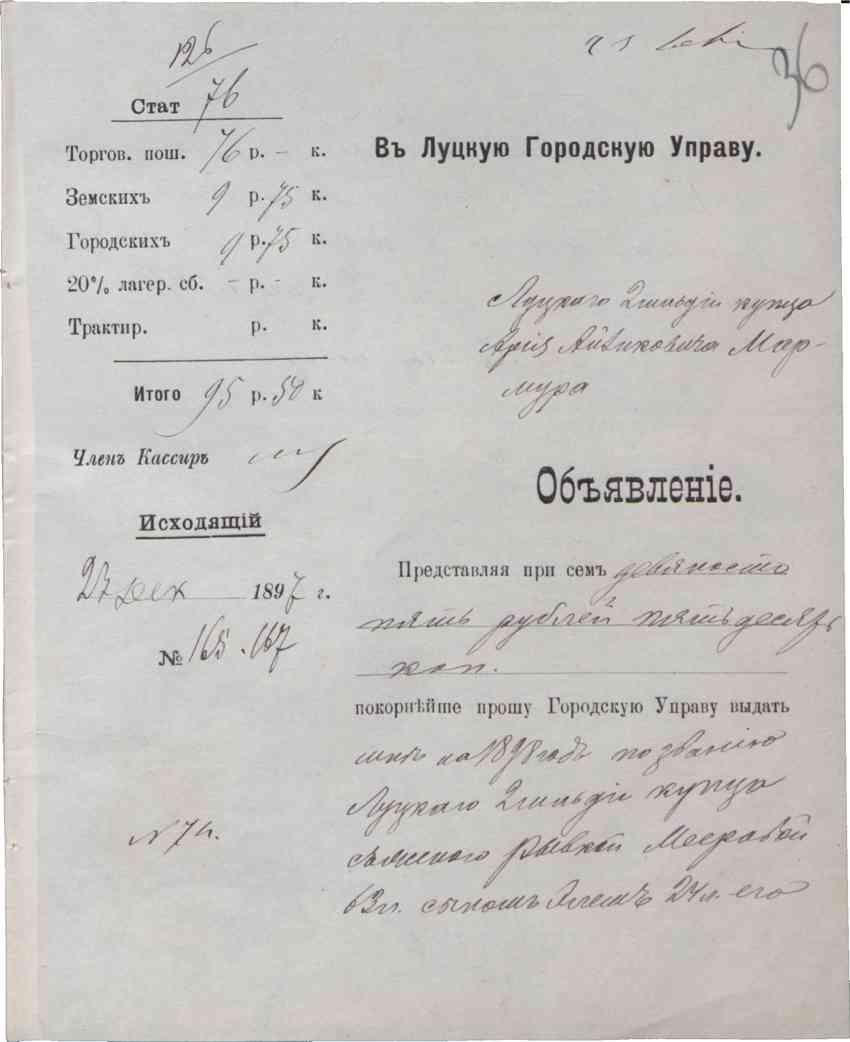 126
Стат 76
Торгов. пош. 76 р. – к.
Земскихъ 9 р. 75 к.
Городскихъ 9 р. 75 к.
20% лагер. сб. – р. – к.
Трактир. р. к.
Итого 95 р. 50 к
Членъ Кассиръ
Исходящій
23 дек 1897 г.
№ 165.167
N 72.
36
Въ Луцкую Городскую Управу.
Луцкаго 2 гильдіи купца
Арія Айзиковича Мар-
мура
Объявленіе.
Представляя при семъ девяносто
пять рублей пятьдесят
коп.
покорнѣйше прошу Городскую Управу выдать
мнѣ на 1898 годъ по званію
Луцкаго 2 гильдіи купца
Рывкой Мееровой
63 л. сыномъ 24 л. его